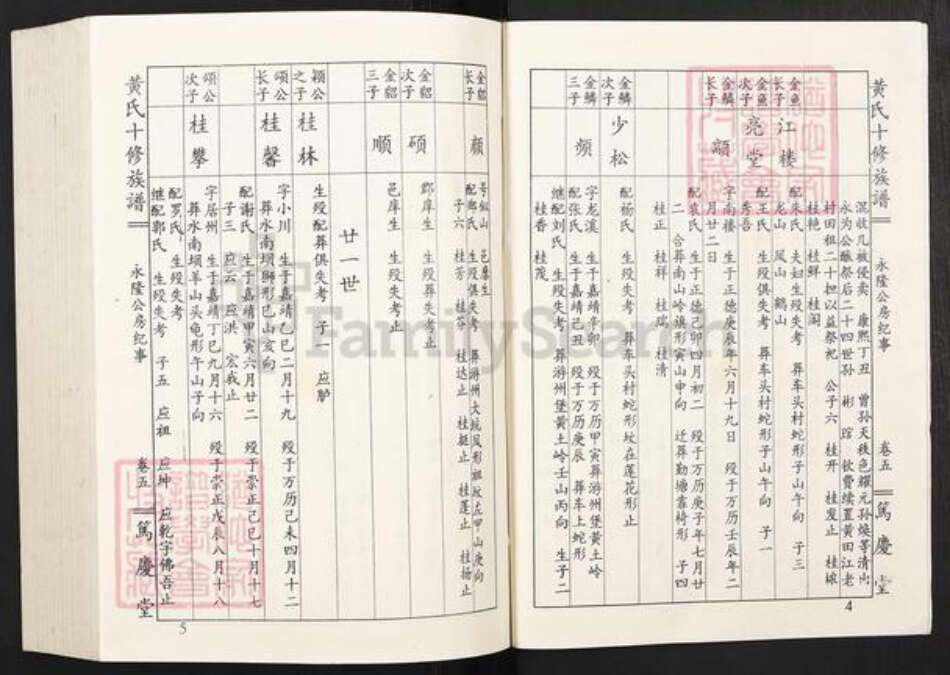 黄氏十修族谱
永隆公房纪事
卷五
篤慶堂
混收几被侵卖 康熙丁丑 曾孙天秩色耀元孙焕等清出
永为公醮祭后二十四世孙 彬 琯 钦费续置黄田江老
村田祖二十担以益祭祀 公子六 桂开 桂发止 桂
桂艳 桂鲜 桂阁
金鱼长子
江楼
配朱氏 夫妇生殁失考 葬车头村蛇形子山午向 子三
龙山 凤山 鹤山
金鱼次子
亮堂
配王氏 生殁失考 葬车头村蛇形子山午向 子一
秀吾
金鳞长子
颛
字南楼 生于正德庚辰年六月十九日 殁于万历壬辰年二
月廿二日
配袁氏 生于正德己卯四月初二 殁于万历庚子年七月廿
二 合葬南山岭旗形寅山申向 迁葬勤塘靠椅形 子四
桂正 桂祥 桂瑞 桂清
金鳞次子
少松
配杨氏 生殁失考 葬车头村蛇形坟在莲花形止
金鳞三子
频
字龙溪 生于嘉靖辛卯 殁于万历甲寅葬游州堡黄土岭
配张氏 生于嘉靖己丑 殁于万历庚辰 葬车上蛇形
继配刘氏 生殁失考 葬游州堡黄土岭壬山丙向 生子二
桂香 桂茂
4
金貂长子
颜
号仙山 邑庠生
配 氏 生殁俱失考 葬游州大坑凤形祖坟左甲山庚向
子六 桂芳 桂芬 桂达止 桂挺止 桂蓬止 桂扬止
金貂次子
硕
郡庠生 生殁葬失考止
金貂三子
顺
邑庠生 生殁失考止
廿一世
颖公之子
桂林
生殁配葬俱失考 子一 应胪
颂公长子
桂馨
字小川 生于嘉靖己巳二月十九 殁于万历己未四月十二
葬水南坝狮形巳山亥向
配谢氏 生于嘉靖甲寅六月廿二 殁于崇正己巳十月十七
子三 应云 应洪 宏我止
颂公次子
桂攀
字居州 生于嘉靖丁巳九月十六 殁于崇正戊辰八月十八
葬水南坝羊山头龟形午山子向
配罗氏 生殁失考
继配郭氏 生殁失考 子五 应祖 应坤 应乾字佛吾止
黄氏十修族谱
永隆公房纪事
卷五
篤慶堂
5
FamilySearch